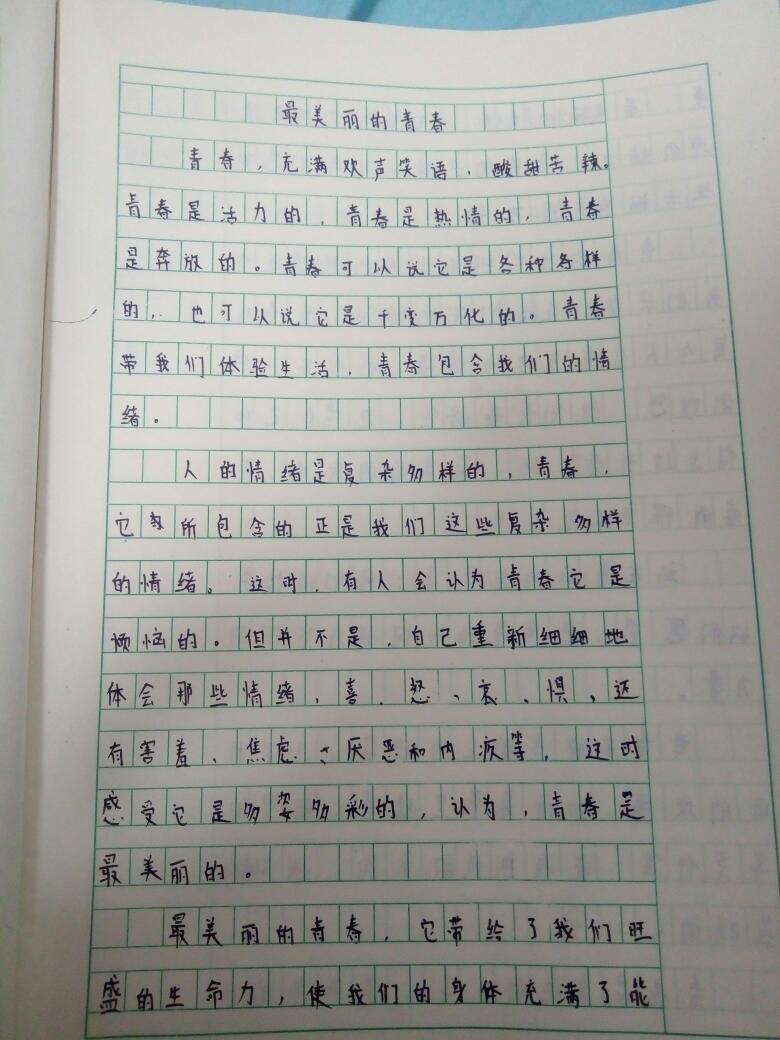 最美丽的青春
青春，充满欢声笑语，酸甜苦辣。
青春是活力的，青春是热情的，青春
是奔放的。青春可以说它是各种各样
的，也可以说它是千变万化的。青春
带我们体验生活，青春包含我们的情
绪。
人的情绪是复杂多样的，青春，
它所包含的正是我们这些复杂多样
的情绪。这时，有人会认为青春它是
烦恼的。但并不是，自己重新细细地
体会那些情绪，喜、怒、哀、惧、还
有害羞、焦虑、厌恶和内疚等，这时
感受它是多姿多彩的，认为，青春是
最美丽的。
最美丽的青春，它带给了我们旺
盛的生命力，使我们的身体充满了能